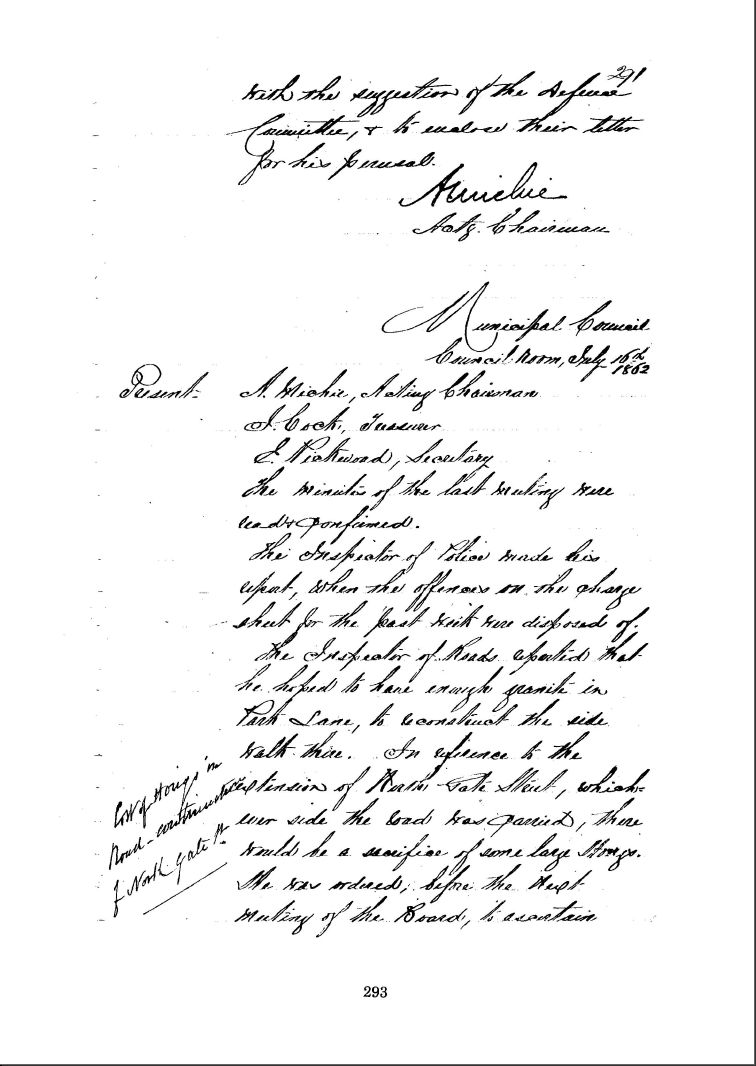 291
with the suggestion of the Defence
Committee, & to enclose their letter
for his perusal.
A Michie
Actg. Chairman
Municipal Council
Council Room, July 16th
1862
Present- A. Michie, Acting Chairman
J. Cock, Treasurer
E. Pickwoad, Secretary
The minutes of the last meeting were
read & confirmed.
The Inspector of Police made his
report, when the offences on the charge
sheet for the past week were disposed of.
The Inspector of Roads reported that
he hoped to have enough granite in
Park Lane, to reconstruct the side
walk there. In reference to the
extension of North Gate Street, which-
ever side the road was carried, there
would be a sacrifice of some large Hongs.
He was ordered, before the next
meeting of the Board, to ascertain
Cost of Hongs in
Road-construction
of North Gate St
293